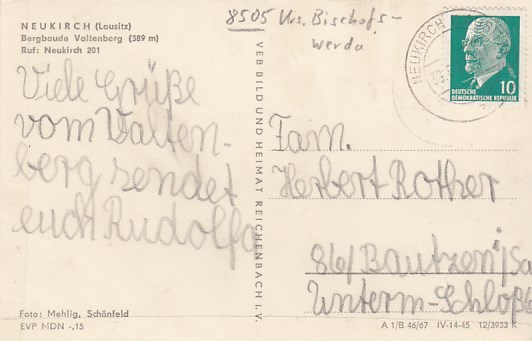 NEUKIRCH (Lausitz)
Bergbaude Valtenberg (589 m)
Ruf: Neukirch 201
8505 Krs. Bischofs-
werda
Viele Grüße
vom Valten-
berg sendet
euch Rudolf
VEB BILD UND HEIMAT REICHENBACH i. V.
NEUKIRCH
DEUTSCHE
DEMOKRATISCHE REPUBLIK
10
Fam.
Herbert Rother
86/Bautzen/Sa
Unterm-Schloß
Foto: Mehlig, Schönfeld
EVP MDN -,15
A 1/B 46/67 IV-14-45 12/3933 K